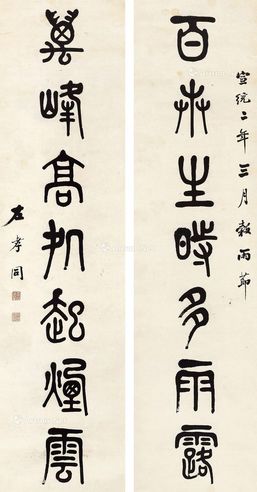 宣統二年三月穀雨節
百卉生時多雨露
萬峰高処起煙雲
左孝同